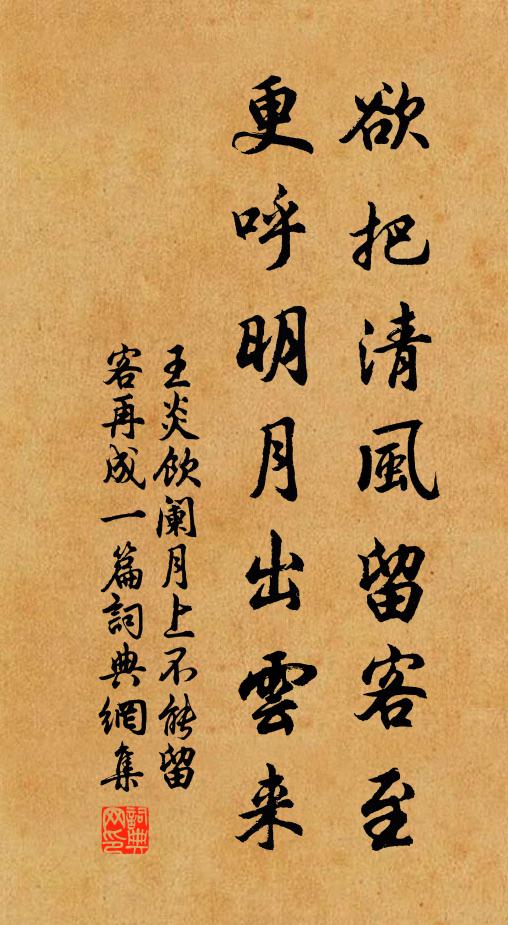 欲把清風留客至
更呼明月出雲来
王炎飲闌月上不能留
客再成一篇詞典網集
詞典网印